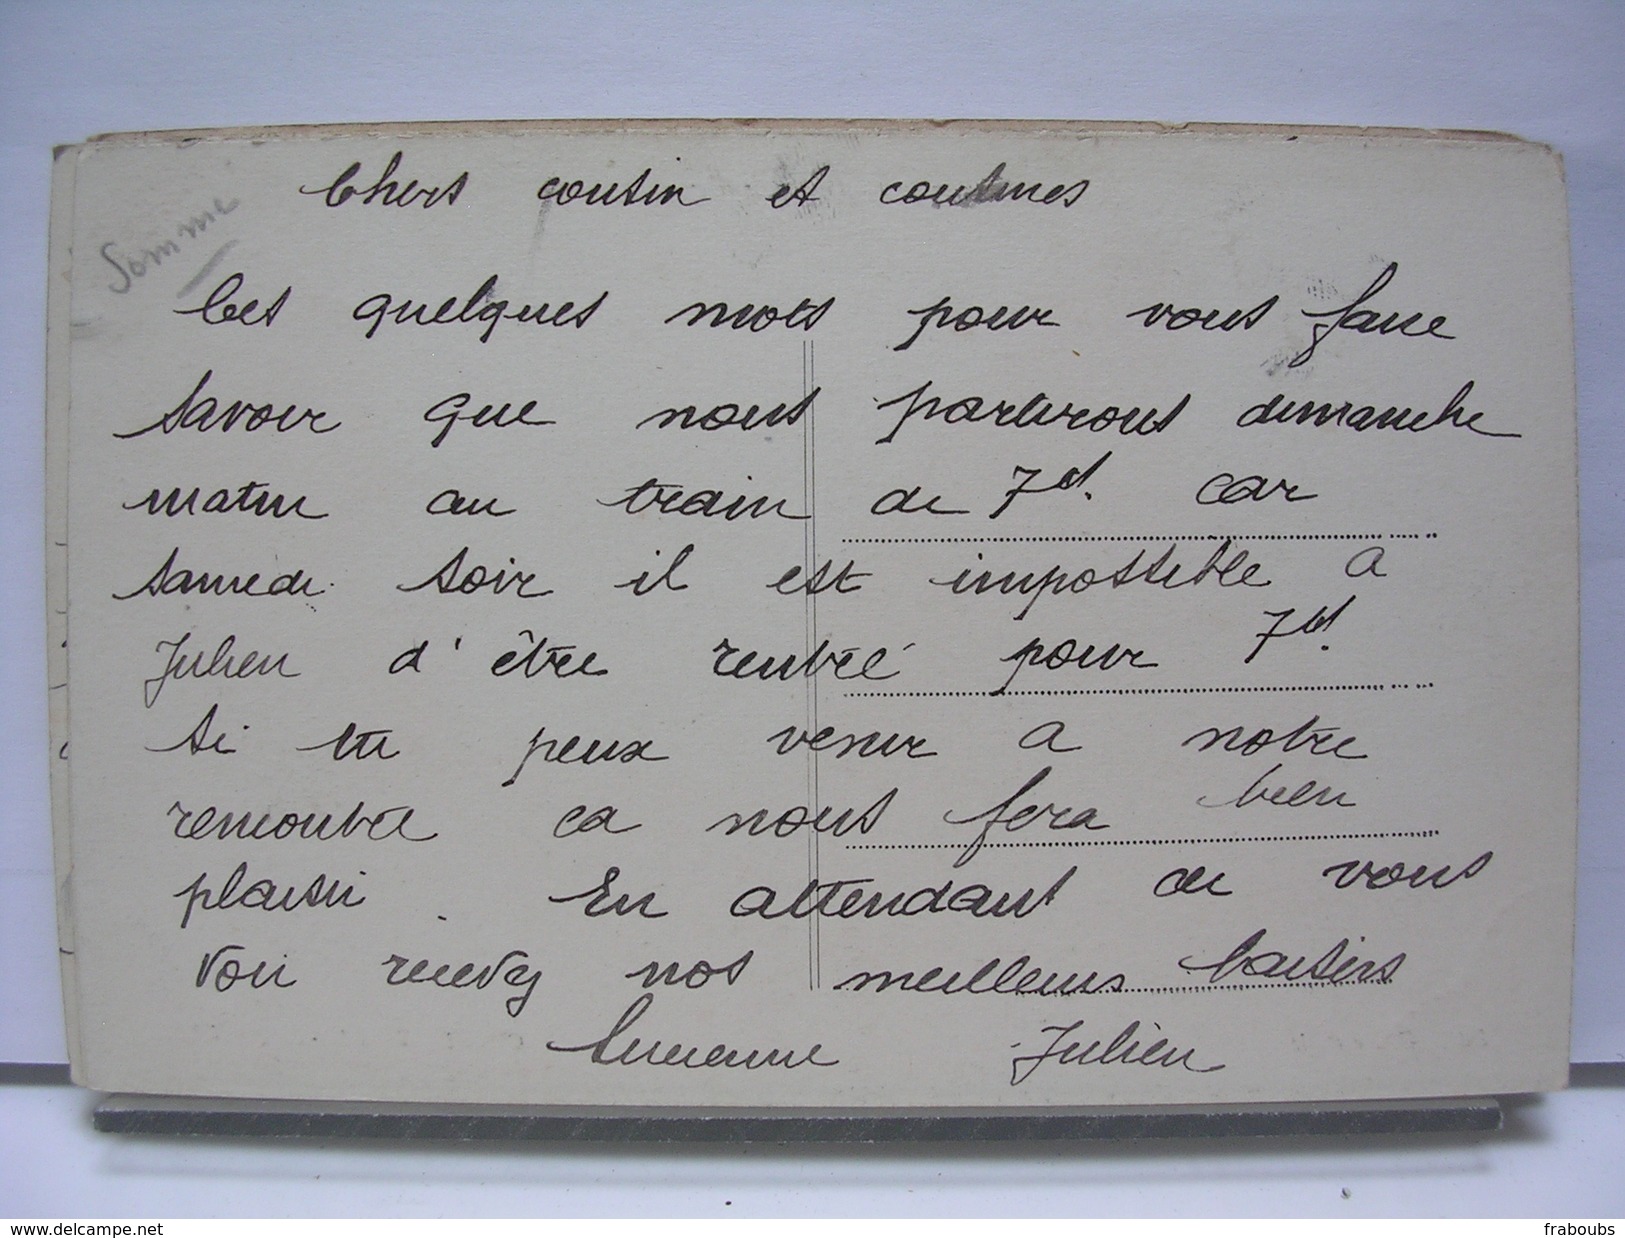 Somme
Chers cousin et cousines
Ces quelques mots pour vous faire
savoir que nous partirons dimanche
matin au train de 7h. car
samedi soir il est impossible a
Julien d'être rentré pour 7h.
Si tu peux venir a notre
rencontre ca nous fera bien
plaisir. En attendant de vous
voir recevez nos meilleurs baisers
Suzanne Julien
www.delcampe.net
fraboubs